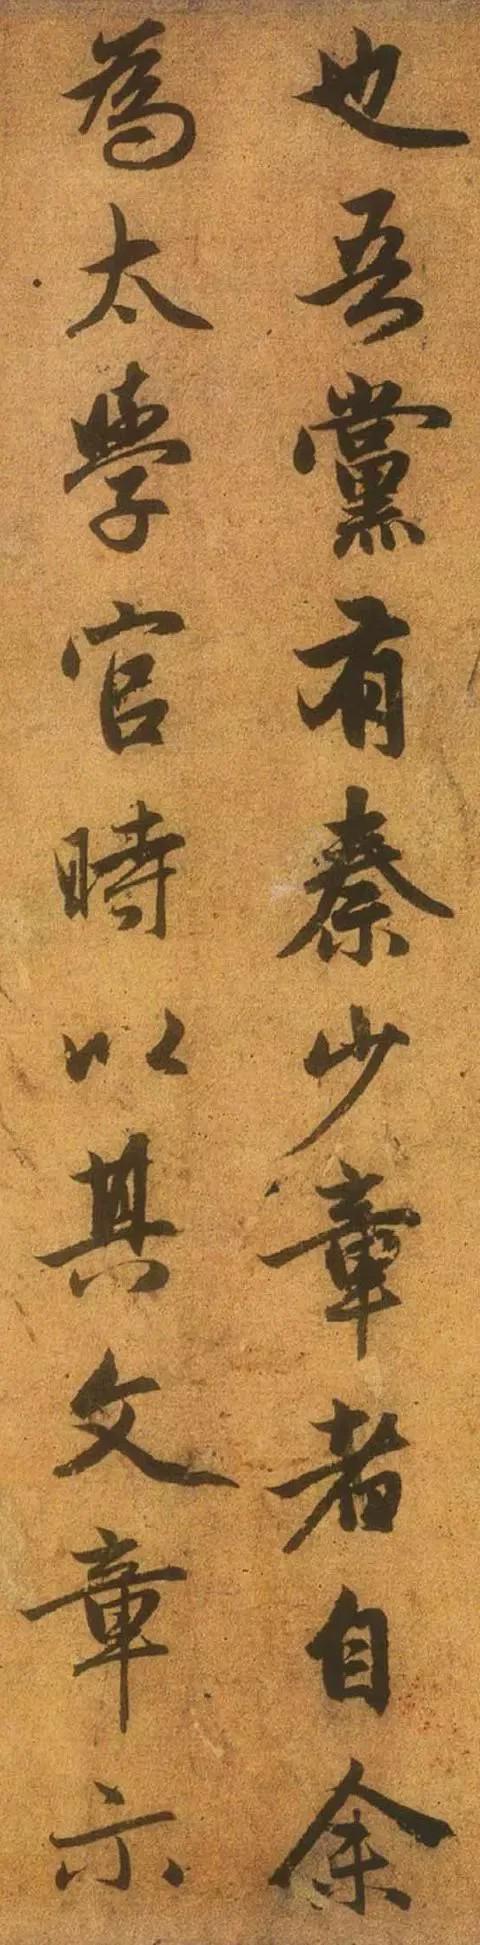 也吾黨有秦少章者自余
為太學官時以其文章示